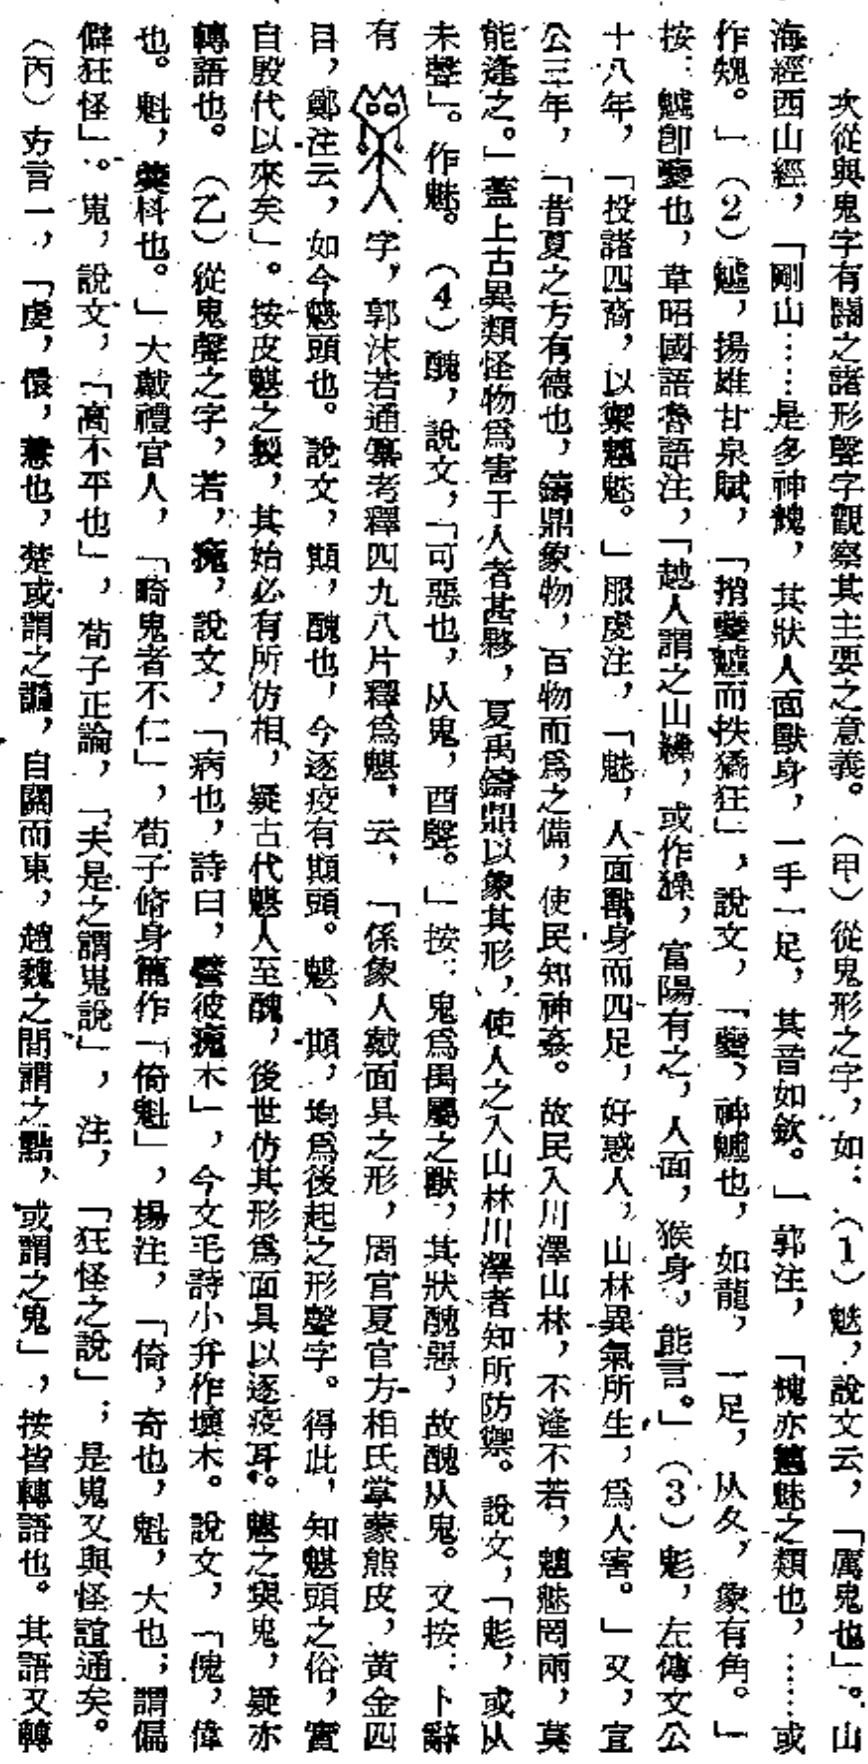 次從與鬼字有關之諸形聲字觀察其主要之意義。(甲)從鬼形之字,如:(1)魃,說文云,「厲鬼也」。山
海經西山經,「剛山……是多神𩳁,其狀人面獸身,一手一足,其音如欽。」郭注,「𩳁亦魑魅之類也,……或
作䰡。」(2)魖,揚雄甘泉賦,「捎夔魖而抶獝狂」,說文,「夔,神魖也,如龍,一足,从夊,象有角。」
按:魖卽夔也,韋昭國語魯語注,「越人謂之山繅,或作獟,富陽有之,人面,猴身,能言。」(3)鬽,左傳文公
十八年,「投諸四裔,以禦魑魅。」服虔注,「魅,人面獸身而四足,好惑人,山林異氣所生,爲人害。」又,宣
公三年,「昔夏之方有德也,鑄鼎象物,百物而爲之備,使民知神姦。故民入川澤山林,不逢不若,魑魅罔兩,莫
能逢之。」蓋上古異類怪物爲害于人者甚夥,夏禹鑄鼎以象其形,使人之入山林川澤者知所防禦。說文,「鬽,或从
未聲」。作魅。(4)醜,說文,「可惡也,从鬼,酉聲。」按:鬼爲禺屬之獸,其狀醜惡,故醜从鬼。又按:卜辭
有字,郭沫若通纂考釋四九八片釋爲魌,云,「係象人戴面具之形,周官夏官方相氏掌蒙熊皮,黃金四
目,鄭注云,如今魌頭也。說文,䫏,醜也,今逐疫有䫏頭。魌、䫏,均爲後起之形聲字。得此,知魌頭之俗,實
自殷代以來矣」。按皮魌之製,其始必有所仿相,疑古代魌人至醜,後世仿其形爲面具以逐疫耳。魌之與鬼,疑亦
轉語也。(乙)從鬼聲之字,若,瘣,說文,「病也,詩曰,譬彼瘣木」,今文毛詩小弁作壞木。說文,「傀,偉
也。魁,羹科也。」大戴禮官人,「畸鬼者不仁」,荀子脩身篇作「倚魁」,楊注,「倚,奇也,魁,大也;謂偏
僻狂怪」。嵬,說文,「高不平也」,荀子正論,「夫是之謂嵬說」,注,「狂怪之說」;是嵬又與怪誼通矣。
(丙)方言一,「虔,儇,慧也,楚或謂之䜏,自關而東,趙魏之間謂之黠,或謂之鬼」,按皆轉語也。其語又轉